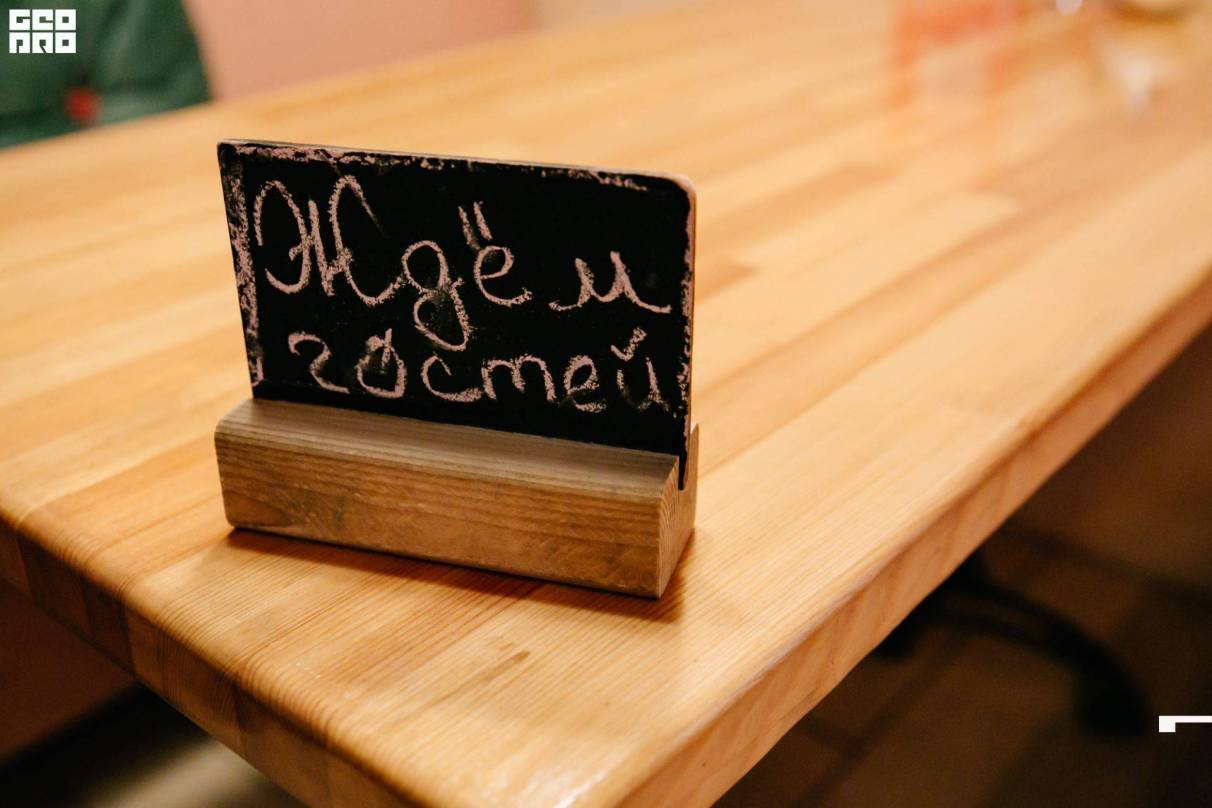 GEO
PRO
Ждём
гостей